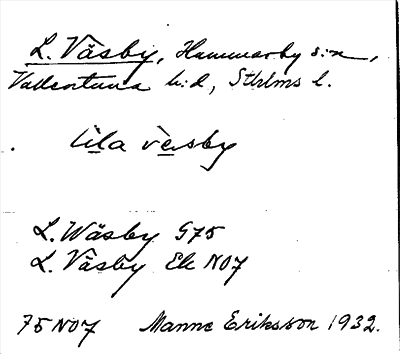 L. Väsby, Hammarby s:n,
Vallentuna h:d, Sthlms l.
lila väsby
L. Wäsby G75
L. Väsby Ek N07
75 N07 Manne Eriksson 1932.